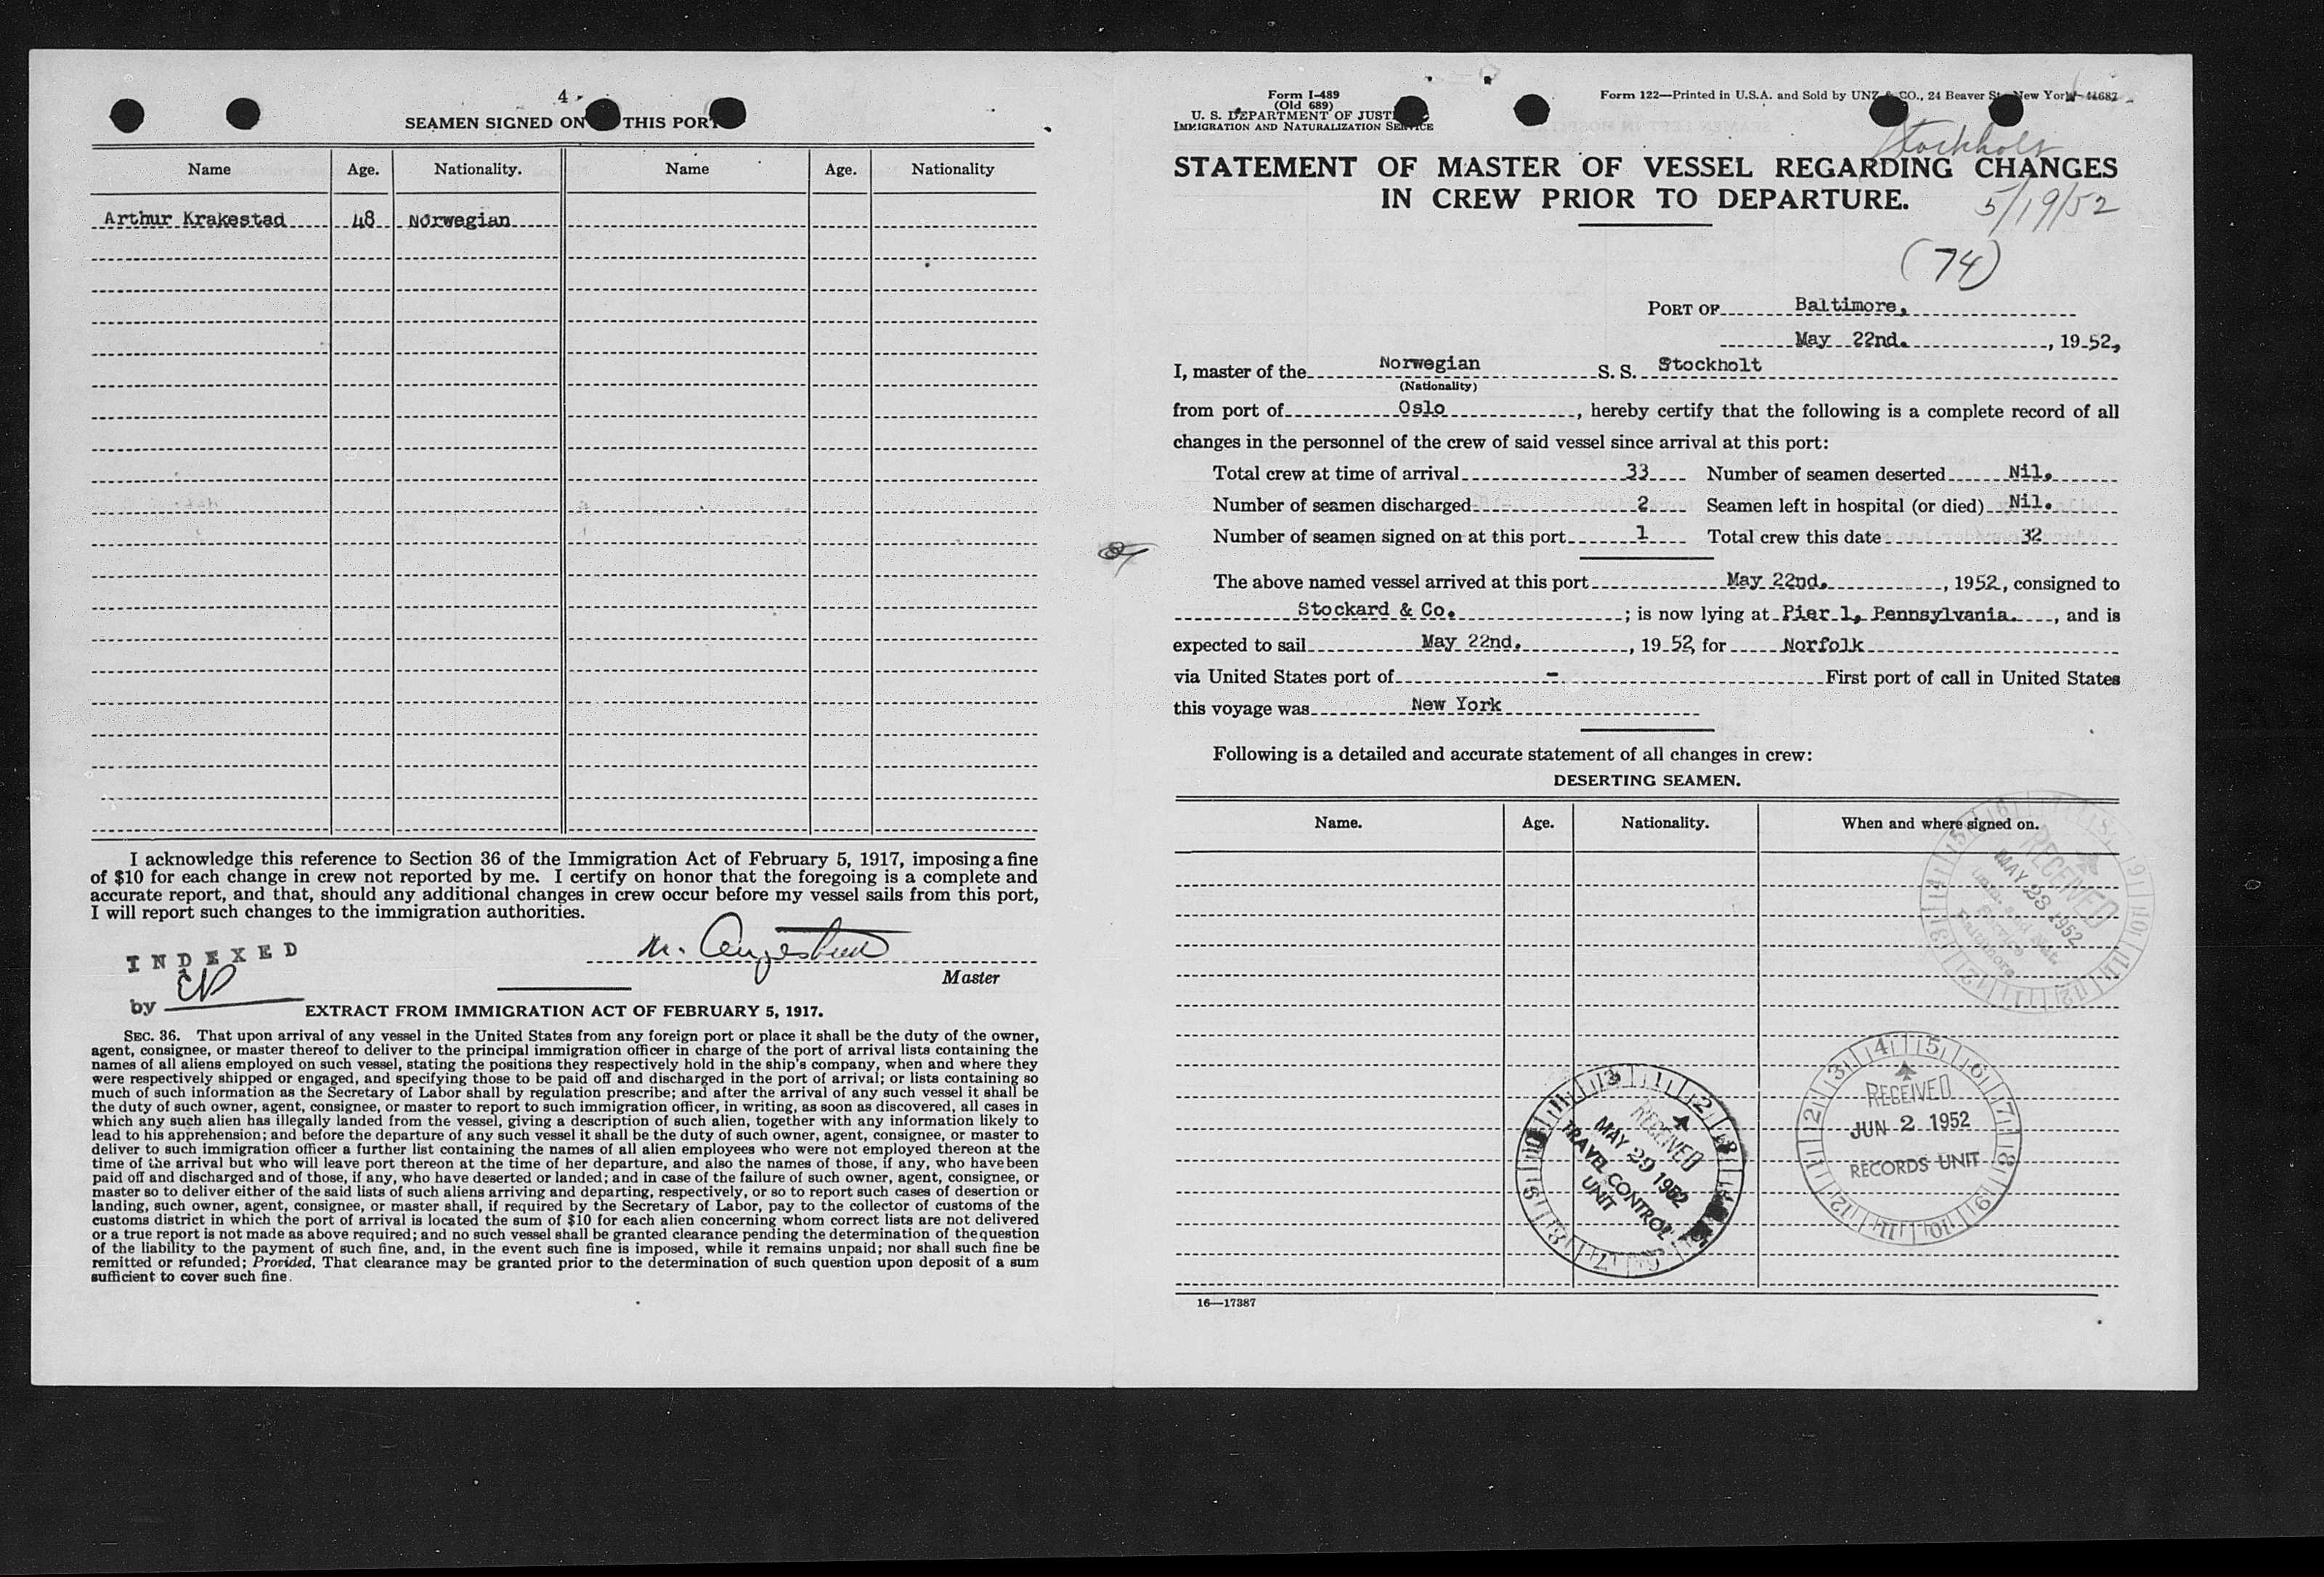 4
SEAMEN SIGNED ON THIS PORT
Name Age. Nationality. Name Age. Nationality
Arthur Krakestad 48 Norwegian
I acknowledge this reference to Section 36 of the Immigration Act of February 5, 1917, imposing a fine
of $10 for each change in crew not reported by me. I certify on honor that the foregoing is a complete and
accurate report, and that, should any additional changes in crew occur before my vessel sails from this port,
I will report such changes to the immigration authorities.
INDEXED
by
Master
EXTRACT FROM IMMIGRATION ACT OF FEBRUARY 5, 1917.
SEC. 36. That upon arrival of any vessel in the United States from any foreign port or place it shall be the duty of the owner,
agent, consignee, or master thereof to deliver to the principal immigration officer in charge of the port of arrival lists containing the
names of all aliens employed on such vessel, stating the positions they respectively hold in the ship's company, when and where they
were respectively shipped or engaged, and specifying those to be paid off and discharged in the port of arrival; or lists containing so
much of such information as the Secretary of Labor shall by regulation prescribe; and after the arrival of any such vessel it shall be
the duty of such owner, agent, consignee, or master to report to such immigration officer, in writing, as soon as discovered, all cases in
which any such alien has illegally landed from the vessel, giving a description of such alien, together with any information likely to
lead to his apprehension; and before the departure of any such vessel it shall be the duty of such owner, agent, consignee, or master to
deliver to such immigration officer a further list containing the names of all alien employees who were not employed thereon at the
time of the arrival but who will leave port thereon at the time of her departure, and also the names of those, if any, who have been
paid off and discharged and of those, if any, who have deserted or landed; and in case of the failure of such owner, agent, consignee, or
master so to deliver either of the said lists of such aliens arriving and departing, respectively, or so to report such cases of desertion or
landing, such owner, agent, consignee, or master shall, if required by the Secretary of Labor, pay to the collector of customs of the
customs district in which the port of arrival is located the sum of $10 for each alien concerning whom correct lists are not delivered
or a true report is not made as above required; and no such vessel shall be granted clearance pending the determination of the question
of the liability to the payment of such fine, and, in the event such fine is imposed, while it remains unpaid; nor shall such fine be
remitted or refunded; Provided, That clearance may be granted prior to the determination of such question upon deposit of a sum
sufficient to cover such fine.
Form I-489
(Old 689)
U. S. DEPARTMENT OF JUSTICE
IMMIGRATION AND NATURALIZATION SERVICE
Form 122—Printed in U.S.A. and Sold by UNZ & CO., 24 Beaver St., New York
Stockholt
STATEMENT OF MASTER OF VESSEL REGARDING CHANGES
IN CREW PRIOR TO DEPARTURE.
5/19/52
(74)
PORT OF Baltimore,
May 22nd., 1952,
I, master of the Norwegian S. S. Stockholt
(Nationality)
from port of Oslo, hereby certify that the following is a complete record of all
changes in the personnel of the crew of said vessel since arrival at this port:
Total crew at time of arrival 33 Number of seamen deserted Nil.
Number of seamen discharged 2 Seamen left in hospital (or died) Nil.
Number of seamen signed on at this port 1 Total crew this date 32
The above named vessel arrived at this port May 22nd., 1952, consigned to
Stockard & Co.; is now lying at Pier 1, Pennsylvania., and is
expected to sail May 22nd., 1952, for Norfolk
via United States port of - First port of call in United States
this voyage was New York
Following is a detailed and accurate statement of all changes in crew:
DESERTING SEAMEN.
Name. Age. Nationality. When and where signed on.
RECEIVED
MAY 23 1952
Imm. and Nat.
Service
Baltimore
RECEIVED
MAY 29 1952
TRAVEL CONTROL
UNIT
RECEIVED
JUN 2 1952
RECORDS UNIT
16—17387